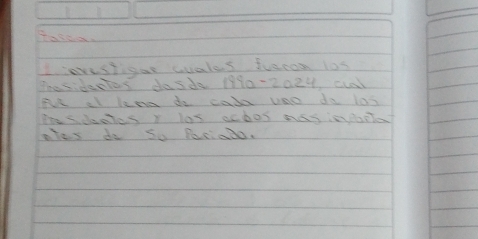 Tarea.
1 investigar cuales fueron los
Presidentes desde 1990-2024, cual
fue el lema de cada uno de los
Presidentes y los ecbos mas importa
ntes de su Periodo.